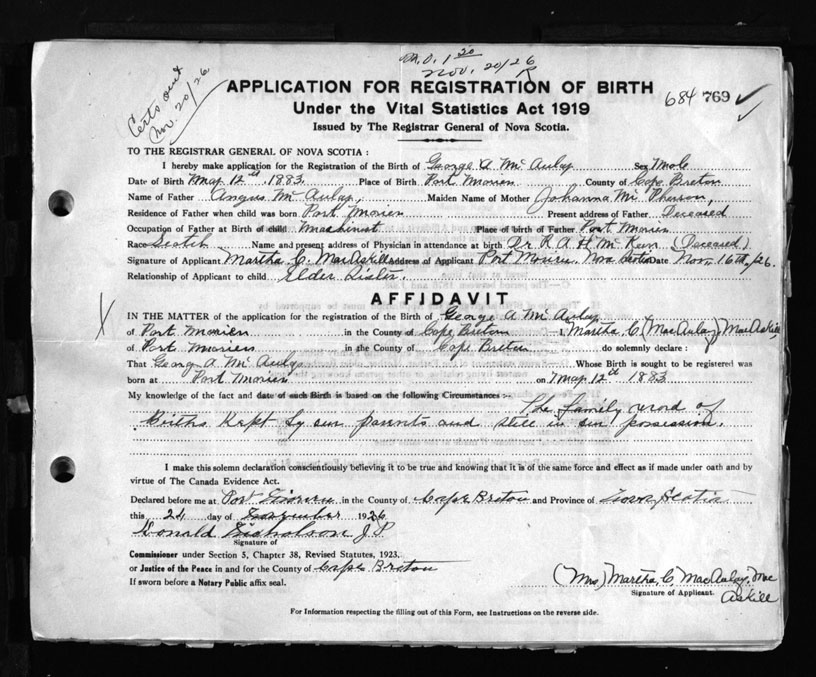 M.O. 1 20
Nov. 20/26
Certs out
Nov. 20/26
APPLICATION FOR REGISTRATION OF BIRTH
684 769
Under the Vital Statistics Act 1919
Issued by The Registrar General of Nova Scotia.
TO THE REGISTRAR GENERAL OF NOVA SCOTIA :
I hereby make application for the Registration of the Birth of George A McAulay Sex Male
Date of Birth May 12th 1883. Place of Birth Port Morien County of Cape Breton
Name of Father Angus McAulay, Maiden Name of Mother Johanna McPherson,
Residence of Father when child was born Port Morien Present address of Father Deceased
Occupation of Father at Birth of child Machinist Place of birth of Father Port Morien
Race Scotch Name and present address of Physician in attendance at birth Dr R A H McKeen (Deceased)
Signature of Applicant Martha C. MacAskill Address of Applicant Port Morien, Nova Scotia Date Nov. 16th/26.
Relationship of Applicant to child Elder Sister
AFFIDAVIT
IN THE MATTER of the application for the registration of the Birth of George A McAulay
X of Port Morien in the County of Cape Breton I, Martha C (MacAulay) MacAskill
of Port Morien in the County of Cape Breton do solemnly declare :
That George A McAulay Whose Birth is sought to be registered was
born at Port Morien on May 12th 1883
My knowledge of the fact and date of such Birth is based on the following Circumstances :-
The family record of
Births Kept by our parents and still in our possession.
I make this solemn declaration conscientiously believing it to be true and knowing that it is of the same force and effect as if made under oath and by
virtue of The Canada Evidence Act.
Declared before me at Port Morien in the County of Cape Breton and Province of Nova Scotia
this 24 day of November 1926
Donald Nicholson J.P.
Signature of
Commissioner under Section 5, Chapter 38, Revised Statutes, 1923.
or Justice of the Peace in and for the County of Cape Breton
If sworn before a Notary Public affix seal.
(Mrs) Martha, C, MacAulay, Mac
Askill
Signature of Applicant.
For Information respecting the filling out of this Form, see Instructions on the reverse side.